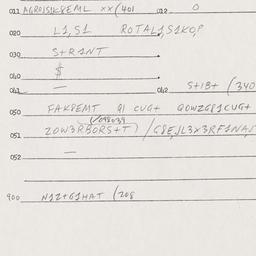 011 AGROJSIK8EML XX(401 012 0
020 L1,S1 ROTAL1S1KOP
030 S+R1NT
040 $
041 — 042 S+1B+ (340
050 FAK8EMT 91 CUG+ QOWZG81CUG+
(1098039
051 ZOW3RBORS+T) /C8EJL3X3RF1NAS
052 —
900 N1Z+G1HAT (208